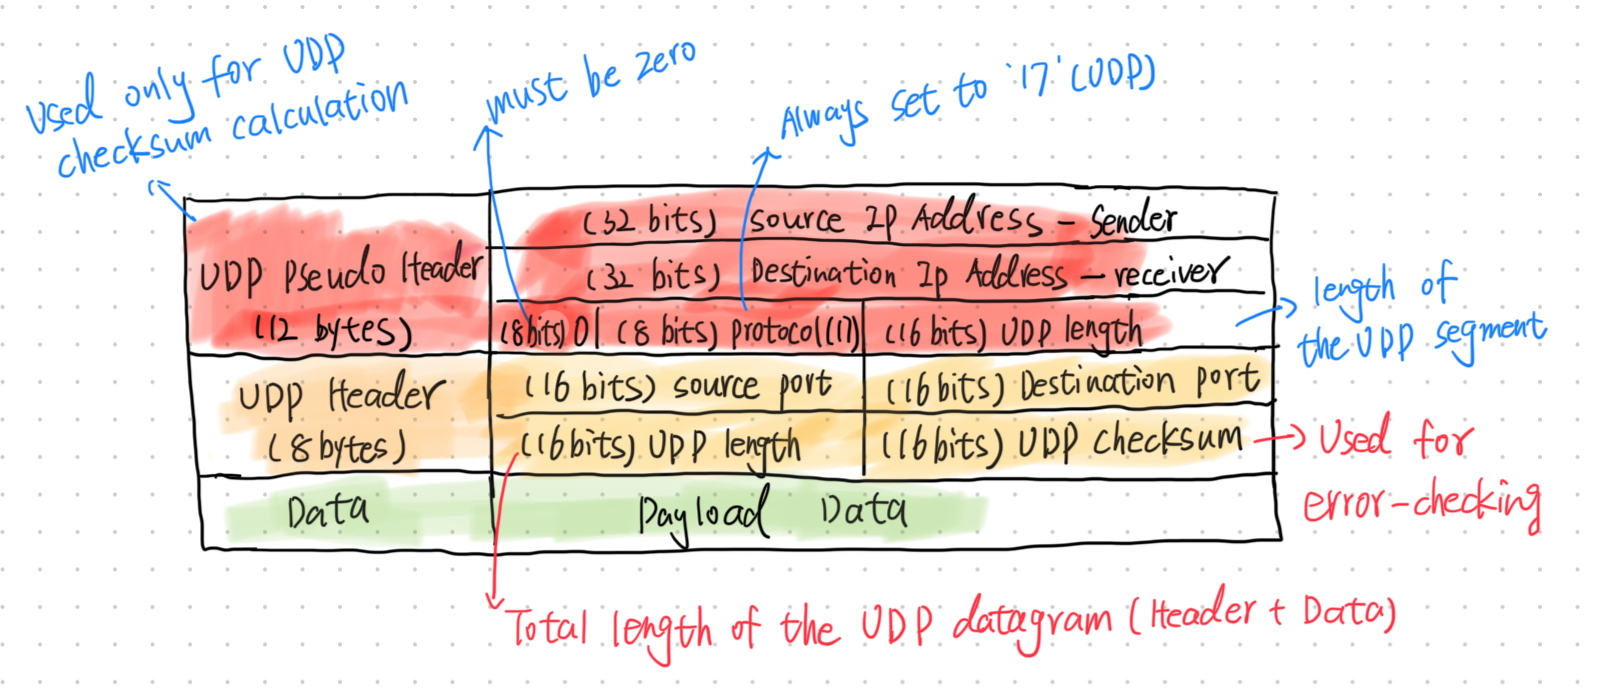 Used only for UDP
checksum calculation
must be zero
Always set to '17' (UDP)
UDP Pseudo Header
(12 bytes)
(32 bits) source Ip Address - Sender
(32 bits) Destination Ip Address - receiver
(8bits) 0 (8 bits) protocol(17) (16 bits) UDP length
length of
the UDP segment
UDP Header
(8 bytes)
(16 bits) source port (16 bits) Destination port
(16bits) UDP length (16 bits) UDP checksum
Used for
error-checking
Data Payload Data
Total length of the UDP datagram (Header + Data)